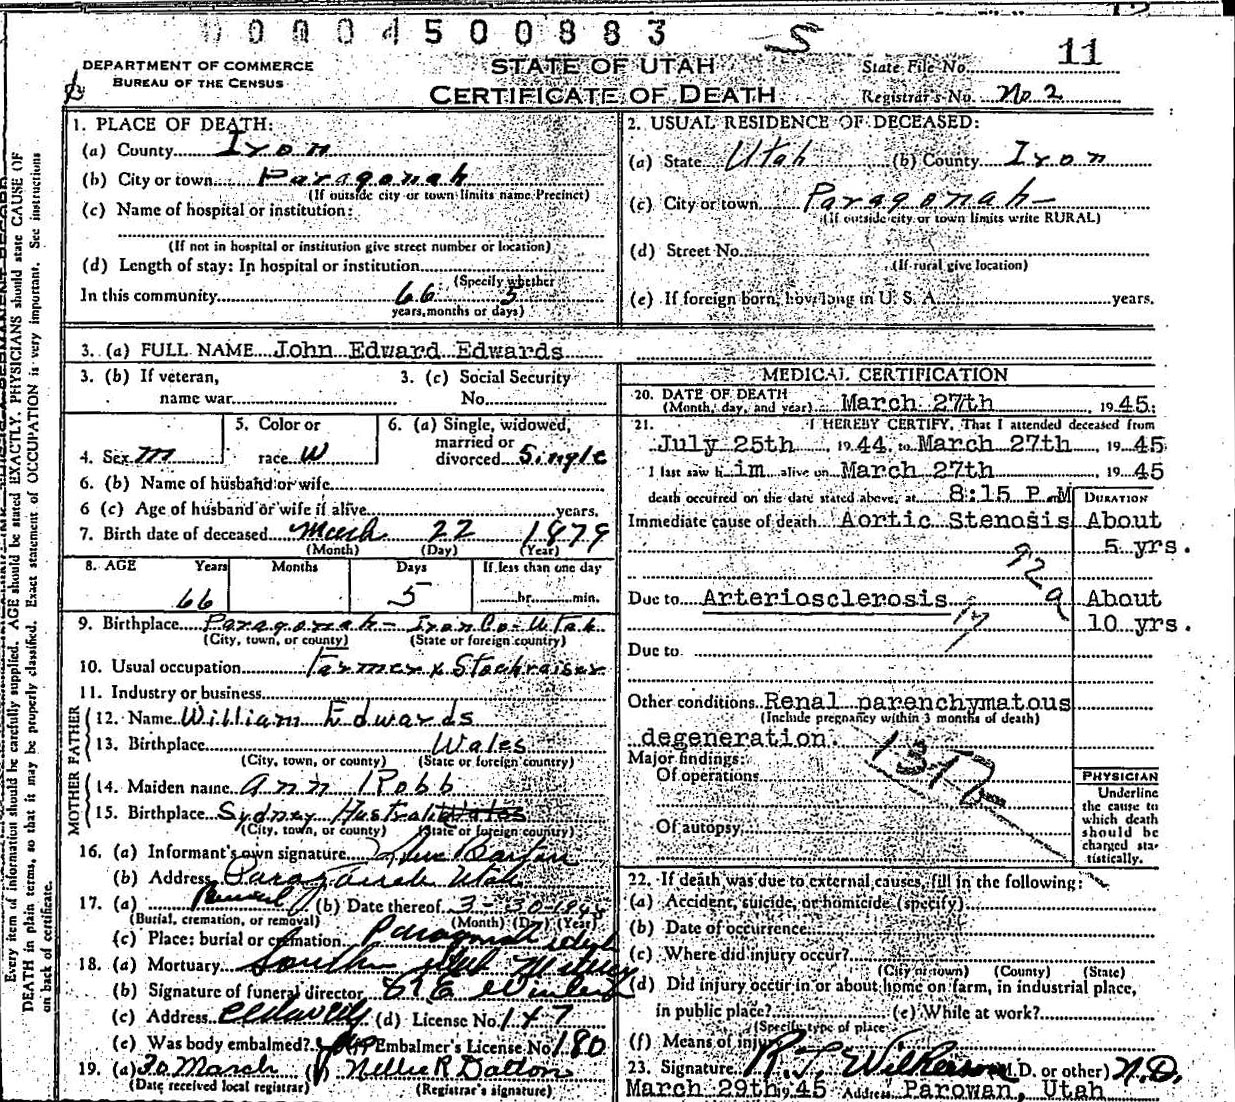 0 0 0 4 5 0 0 8 8 3
S
11
DEPARTMENT OF COMMERCE
BUREAU OF THE CENSUS
STATE OF UTAH
CERTIFICATE OF DEATH
State File No.
Registrar's No. No 2
Every item of information should be carefully supplied. AGE should be stated EXACTLY. PHYSICIANS should state CAUSE OF
DEATH in plain terms, so that it may be properly classified. Exact statement of OCCUPATION is very important. See instructions
on back of certificate.
1. PLACE OF DEATH:
(a) County Iron
(b) City or town Paragonah
(If outside city or town limits name Precinct)
(c) Name of hospital or institution:
(If not in hospital or institution give street number or location)
(d) Length of stay: In hospital or institution
(Specify whether
In this community 66 5
years, months or days)
2. USUAL RESIDENCE OF DECEASED:
(a) State Utah (b) County Iron
(c) City or town Paragonah
(If outside city or town limits write RURAL)
(d) Street No.
(If rural give location)
(e) If foreign born, how long in U. S. A. years.
3. (a) FULL NAME John Edward Edwards
3. (b) If veteran,
name war
3. (c) Social Security
No.
4. Sex m
5. Color or
race W
6. (a) Single, widowed,
married or
divorced Single
6. (b) Name of husband or wife
6 (c) Age of husband or wife if alive years.
7. Birth date of deceased March 22 1879
(Month) (Day) (Year)
8. AGE Years Months Days If less than one day
66 5 hr. min.
9. Birthplace Paragonah - Iron Co - Utah
(City, town, or county) (State or foreign country)
10. Usual occupation Farmer & Stockraiser
11. Industry or business
FATHER
12. Name William Edwards
13. Birthplace Wales
(City, town, or county) (State or foreign country)
MOTHER
14. Maiden name Ann Robb
15. Birthplace Sydney Australia Wales
(City, town, or county) (State or foreign country)
16. (a) Informant's own signature
(b) Address Paragonah Utah
17. (a) (b) Date thereof 3-30-1945
(Burial, cremation, or removal) (Month) (Day) (Year)
(c) Place: burial or cremation Paragonah Utah
18. (a) Mortuary Southern Utah Mortuary
(b) Signature of funeral director
(c) Address (d) License No. 147
(e) Was body embalmed? Embalmer's License No. 180
19. (a) 30 March (b) Nellie R Dalton
(Date received local registrar) (Registrar's signature)
MEDICAL CERTIFICATION
20. DATE OF DEATH
(Month, day, and year) March 27th, 1945.
21. I HEREBY CERTIFY, That I attended deceased from
July 25th 1944, to March 27th, 1945
I last saw h im alive on March 27th 1945
death occurred on the date stated above, at 8:15 P.M
DURATION
Immediate cause of death Aortic Stenosis About
5 yrs.
92a
Due to Arteriosclerosis About
10 yrs.
17
Due to
Other conditions Renal parenchymatous
(Include pregnancy within 3 months of death)
degeneration.
Major findings:
Of operations
Of autopsy
PHYSICIAN
Underline
the cause to
which death
should be
charged sta-
tistically.
22. If death was due to external causes, fill in the following:
(a) Accident, suicide, or homicide (specify)
(b) Date of occurrence
(c) Where did injury occur?
(City or town) (County) (State)
(d) Did injury occur in or about home on farm, in industrial place,
in public place? (e) While at work?
(Specify type of place)
(f) Means of injury
23. Signature R. J. Wilkerson (M.D. or other) N.D.
March 29th, 45 Address Parowan, Utah